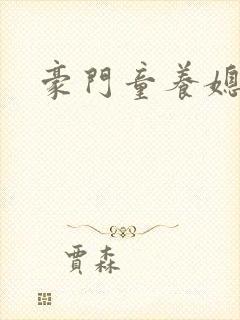 豪門童養媳
賈森